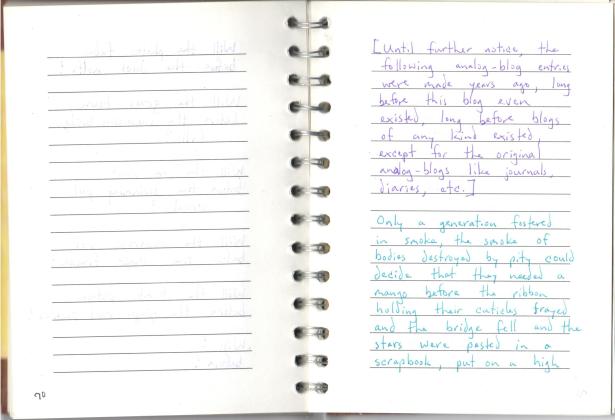 [Until further notice, the
following analog-blog entries
were made years ago, long
before this blog even
existed, long before blogs
of any kind existed,
except for the original
analog-blogs like journals,
diaries, etc.]
Only a generation fostered
in smoke, the smoke of
bodies destroyed by pity could
decide that they needed a
mango before the ribbon
holding their cuticles frayed
and the bridge fell and the
stars were pasted in a
scrapbook, put on a high
70